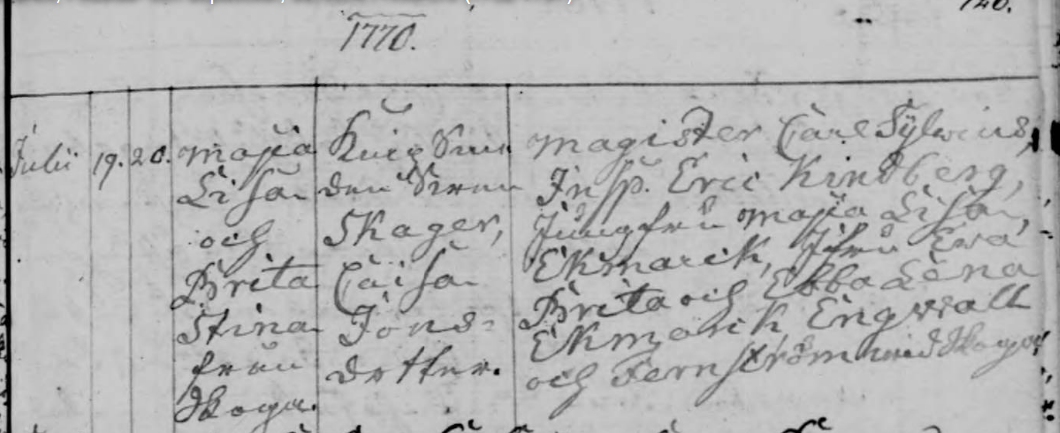 1770.
Julii 19. 20. Maja
Lisa
och
Brita
Stina
från
Skoga.
den Sven
Skager,
Caisa
Jons-
dotter.
Magister Carl Sylvius,
Insp. Eric Kindberg,
Jungfru Maja Lisa
Ekmarck, Jfru Eva
Brita och Ebba Lena
Ekmarck Engwall
och Fernström Skoga